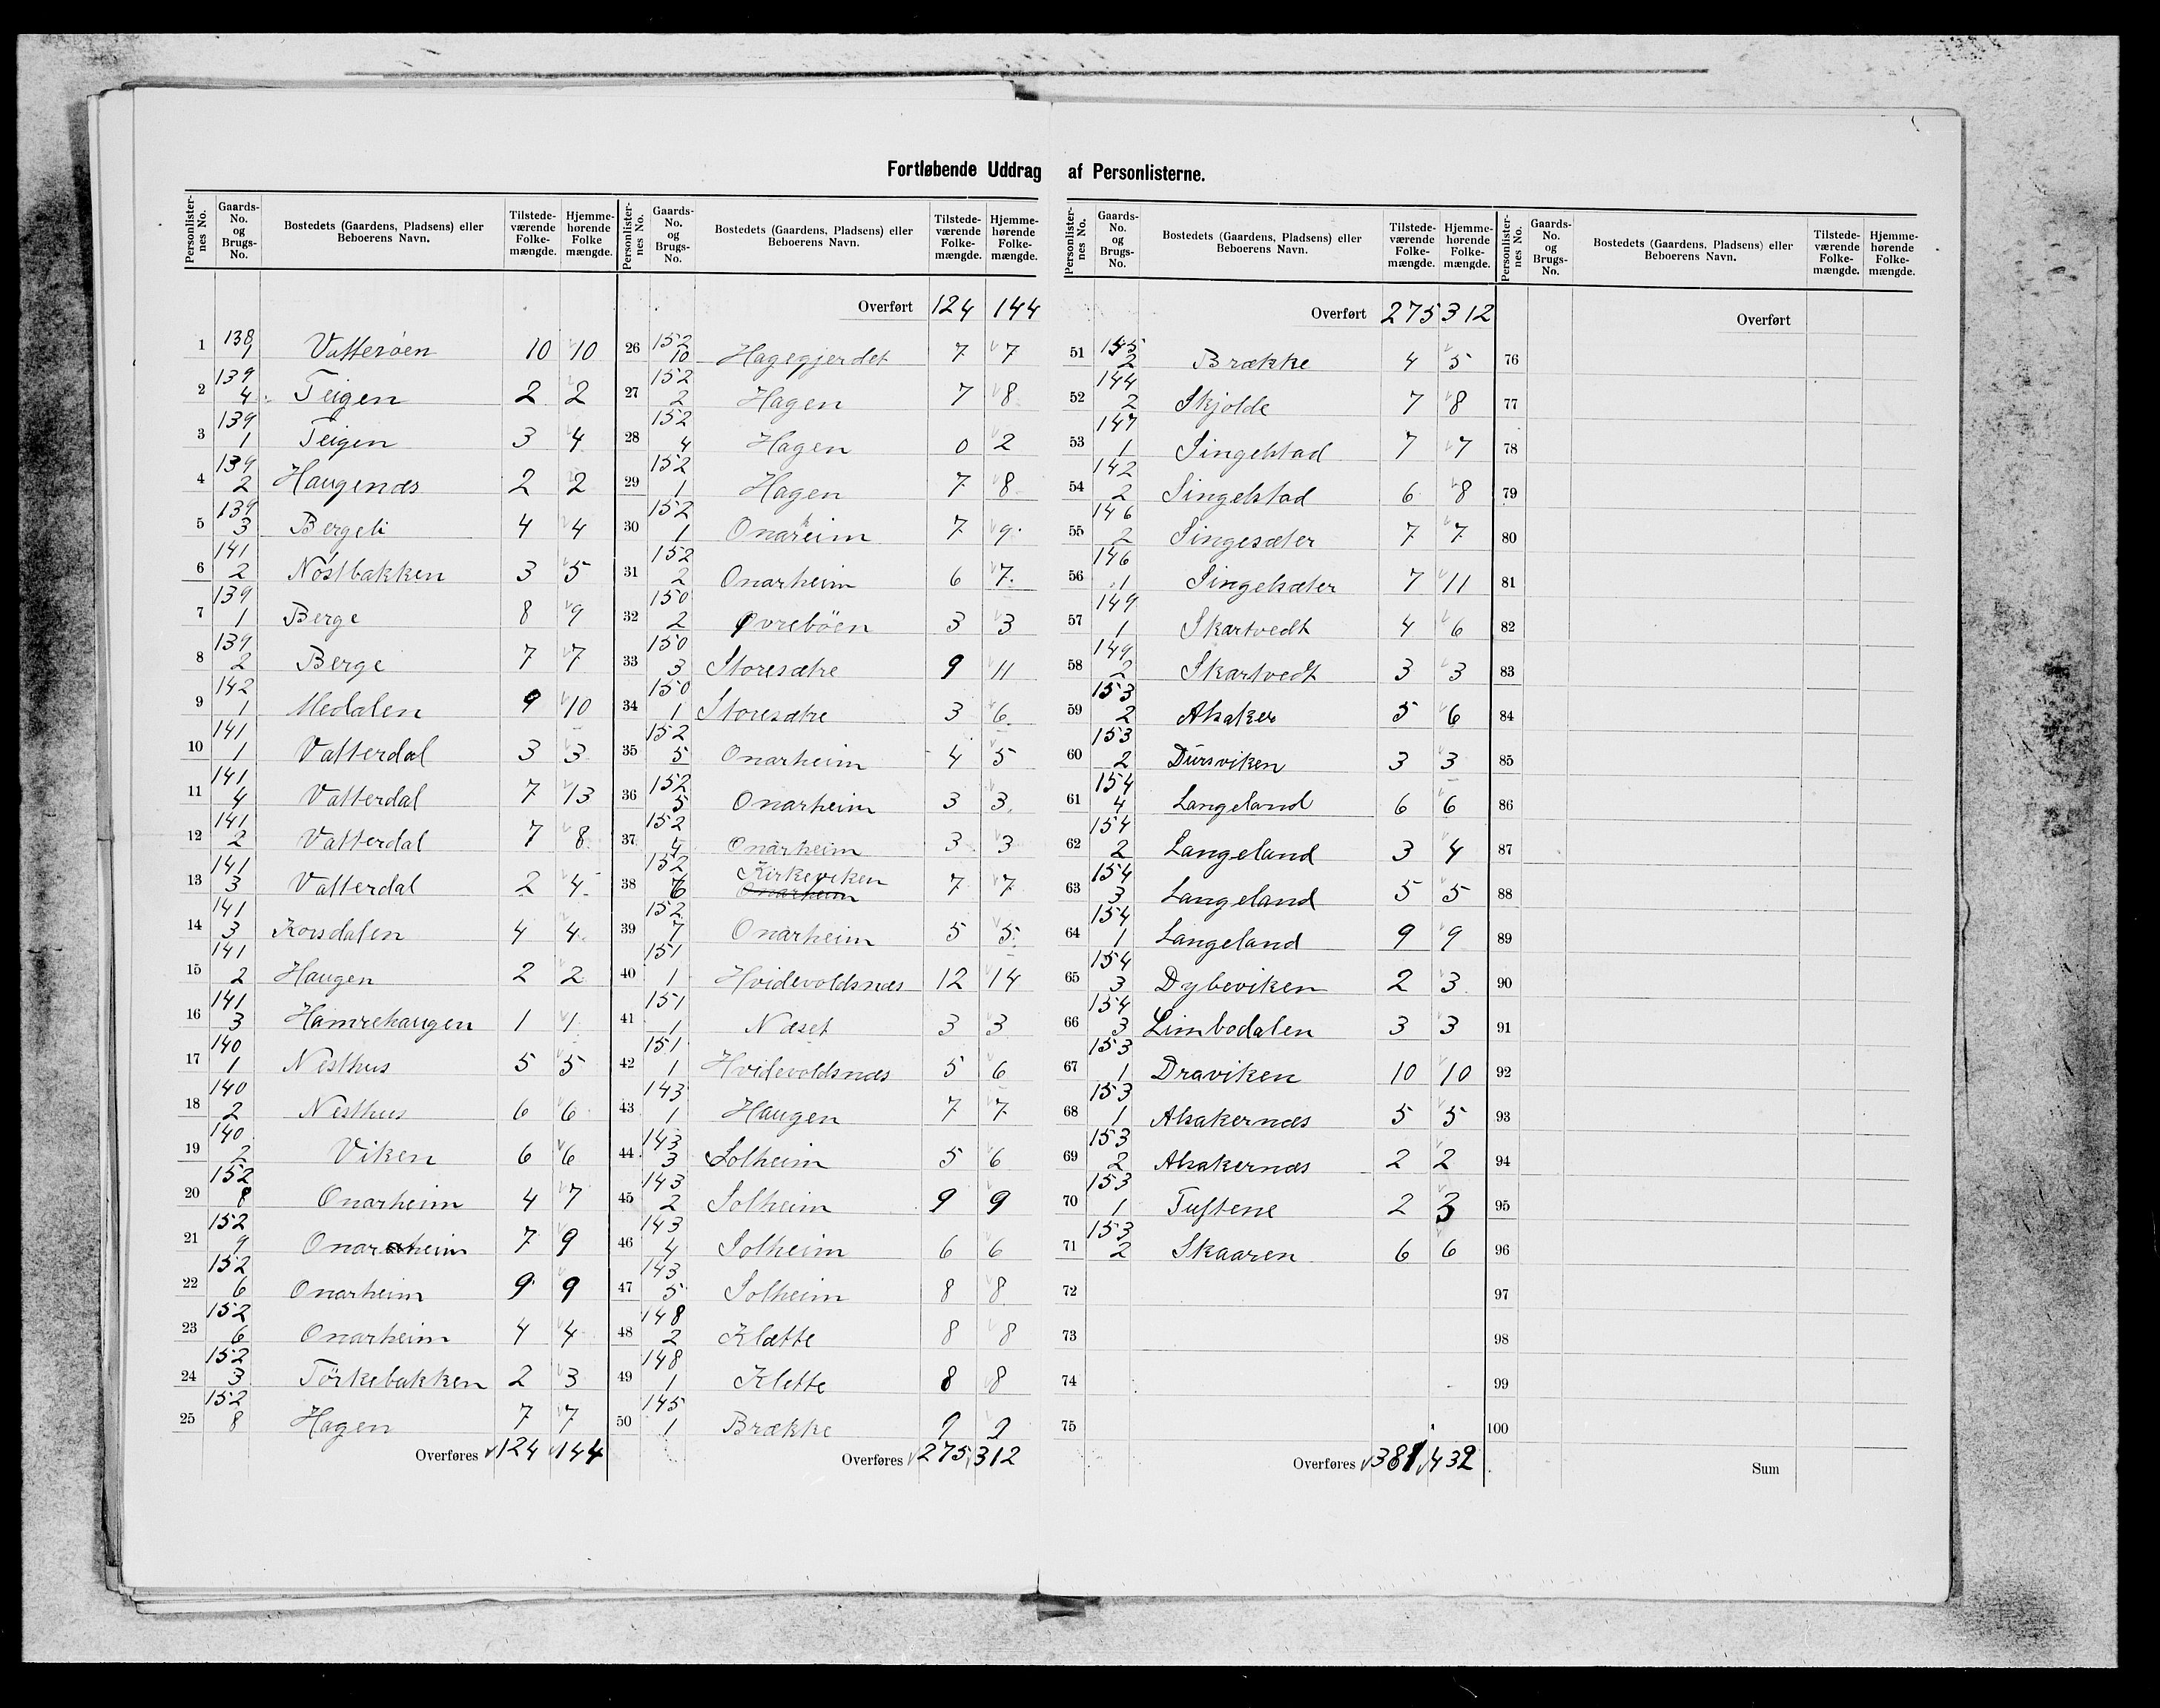 Fortløbende Uddrag af Personlisterne.
Personlisternes No. Gaards-No. og Brugs-No. Bostedets (Gaardens, Pladsens) eller Beboerens Navn. Tilstedeværende Folkemængde. Hjemmehørende Folkemængde.
1 138 1 Vatteröen 10 10
2 139 4 Teigen 2 2
3 139 1 Teigen 3 4
4 139 2 Haugenæs 2 2
5 139 3 Bergeli 4 4
6 141 2 Nöstbakken 3 5
7 139 1 Berge 8 9
8 139 2 Berge 7 7
9 142 1 Medalen 9 10
10 141 1 Vatterdal 3 3
11 141 4 Vatterdal 7 13
12 141 2 Vatterdal 7 8
13 141 3 Vatterdal 2 4
14 141 3 Korsdalen 4 4
15 141 2 Haugen 2 2
16 141 3 Hamrehaugen 1 1
17 140 1 Nesthus 5 5
18 140 2 Nesthus 6 6
19 140 2 Viken 6 6
20 152 8 Onarheim 4 7
21 152 9 Onarheim 7 9
22 152 6 Onarheim 9 9
23 152 6 Onarheim 4 4
24 152 3 Törkebakken 2 3
25 152 8 Hagen 7 7
Overføres 124 144
Personlisternes No. Gaards-No. og Brugs-No. Bostedets (Gaardens, Pladsens) eller Beboerens Navn. Tilstedeværende Folkemængde. Hjemmehørende Folkemængde.
Overført 124 144
26 152 10 Hagegjerdet 7 7
27 152 2 Hagen 7 8
28 152 4 Hagen 0 2
29 152 1 Hagen 7 8
30 152 1 Onarheim 7 9
31 152 2 Onarheim 6 7
32 150 2 Øvreböen 3 3
33 150 3 Storesætre 9 11
34 150 1 Storesætre 3 6
35 152 5 Onarheim 4 5
36 152 5 Onarheim 3 3
37 152 4 Onarheim 3 3
38 152 6 Kirkeviken Onarheim 7 7
39 152 7 Onarheim 5 5
40 151 1 Hvidevoldsnæs 12 14
41 151 1 Næset 3 3
42 151 1 Hvidevoldsnæs 5 6
43 143 1 Haugen 7 7
44 143 3 Solheim 5 6
45 143 2 Solheim 9 9
46 143 4 Solheim 6 6
47 143 5 Solheim 8 8
48 148 2 Klætte 8 8
49 148 1 Klette 8 8
50 145 1 Brække 9 9
Overføres 275 312
Personlisternes No. Gaards-No. og Brugs-No. Bostedets (Gaardens, Pladsens) eller Beboerens Navn. Tilstedeværende Folkemængde. Hjemmehørende Folkemængde.
Overført 275 312
51 145 2 Brække 4 5
52 144 2 Skjolde 7 8
53 147 1 Singelstad 7 7
54 142 2 Singelstad 6 8
55 146 2 Singesæter 7 7
56 146 1 Singelsæter 7 11
57 149 1 Skartvedt 4 6
58 149 2 Skartvedt 3 3
59 153 2 Alsaker 5 6
60 153 2 Dursviken 3 3
61 154 4 Langeland 6 6
62 154 2 Langeland 3 4
63 154 3 Langeland 5 5
64 154 1 Langeland 9 9
65 154 3 Dybeviken 2 3
66 154 3 Limbodalen 3 3
67 153 1 Draviken 10 10
68 153 1 Alsakernæs 5 5
69 153 2 Alsakernæs 2 2
70 153 1 Tuftene 2 3
71 153 2 Skaaren 6 6
72
73
74
75
Overføres 381 432
Personlisternes No. Gaards-No. og Brugs-No. Bostedets (Gaardens, Pladsens) eller Beboerens Navn. Tilstedeværende Folkemængde. Hjemmehørende Folkemængde.
Overført
76
77
78
79
80
81
82
83
84
85
86
87
88
89
90
91
92
93
94
95
96
97
98
99
100
Sum